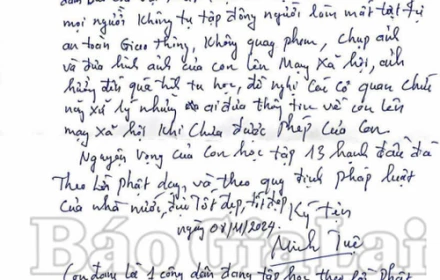 mọi người không tụ tập đông người làm mất trật tự
an toàn Giao thông, không quay phim, chụp ảnh
và đưa hình ảnh của con lên Mạng Xã hội, ảnh
hưởng đến quá trình tu học, đề nghị Các cơ quan chức
năng xử lý những ai đưa thông tin về con lên
mạng xã hội khi Chưa được phép Của Con.
Nguyện vọng của Con học tập 13 hạnh đầu đà
Theo lời phật dạy, và theo quy định pháp luật
của nhà nước, đời tốt đẹp, đạo
Ký tên
ngày 08/11/2024.
Minh Tuệ
Báo Gia Lai
Con đang là 1 công dân đang tập học theo lời phật